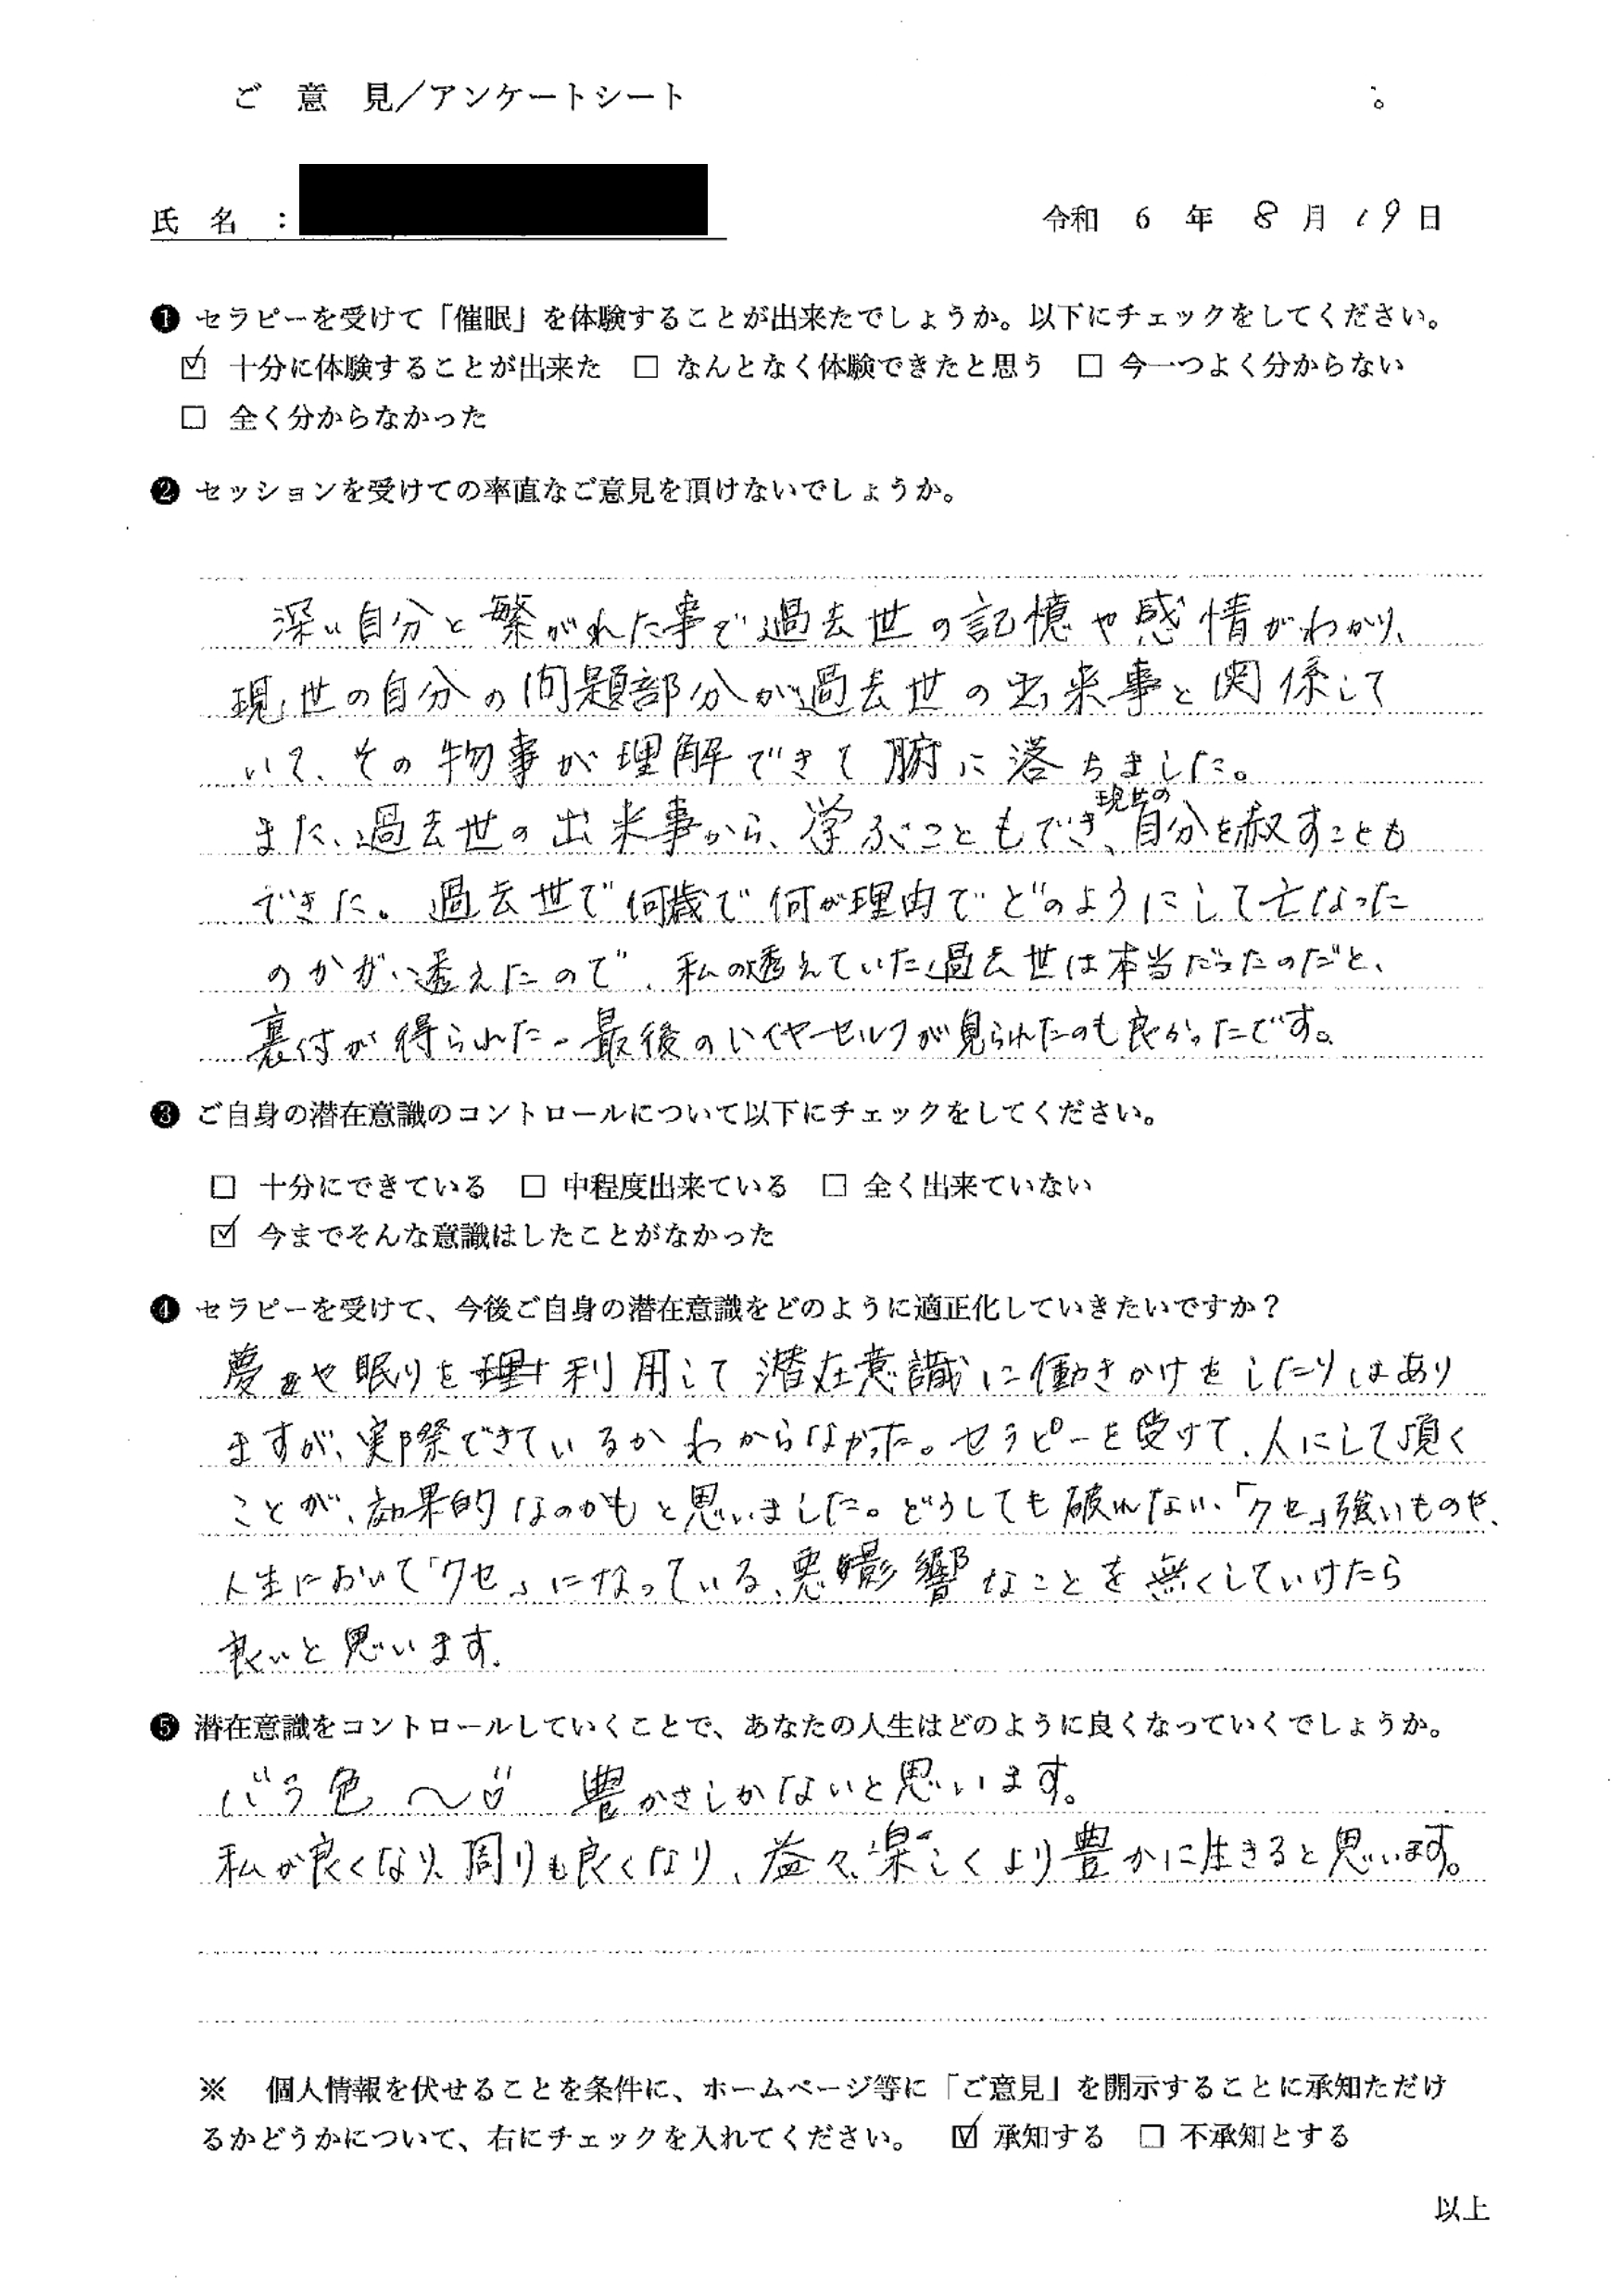 ご 意 見／アンケートシート
氏 名 ：
令和 6 年 8 月 19 日
❶ セラピーを受けて「催眠」を体験することが出来たでしょうか。以下にチェックをしてください。
☑ 十分に体験することが出来た □ なんとなく体験できたと思う □ 今一つよく分からない
□ 全く分からなかった
❷ セッションを受けての率直なご意見を頂けないでしょうか。
深い自分と繋がれた事で過去世の記憶や感情がわかり、
現世の自分の問題部分が過去世の出来事と関係して
いて、その物事が理解できて腑に落ちました。
また、過去世の出来事から、学ぶこともでき、現世の自分を赦すことも
できた。過去世で何歳で何が理由でどのようにして亡なった
のかが透えたので、私の透えていた過去世は本当だったのだと、
裏付が得られた。最後のハイヤーセルフが見られたのも良かったです。
❸ ご自身の潜在意識のコントロールについて以下にチェックをしてください。
□ 十分にできている □ 中程度出来ている □ 全く出来ていない
☑ 今までそんな意識はしたことがなかった
❹ セラピーを受けて、今後ご自身の潜在意識をどのように適正化していきたいですか？
夢や眠りを利用して潜在意識に働きかけをしたりはあり
ますが、実際できているかわからなかった。セラピーを受けて、人にして頂く
ことが、効果的なのかもと思いました。どうしても破れない、「クセ」強いものや、
人生において「クセ」になっている、悪影響なことを無くしていけたら
良いと思います。
❺ 潜在意識をコントロールしていくことで、あなたの人生はどのように良くなっていくでしょうか。
バラ色〜 豊かさしかないと思います。
私が良くなり、周りも良くなり、益々、楽しくより豊かに生きると思います。
※ 個人情報を伏せることを条件に、ホームページ等に「ご意見」を開示することに承知ただけ
るかどうかについて、右にチェックを入れてください。 ☑ 承知する □ 不承知とする
以上